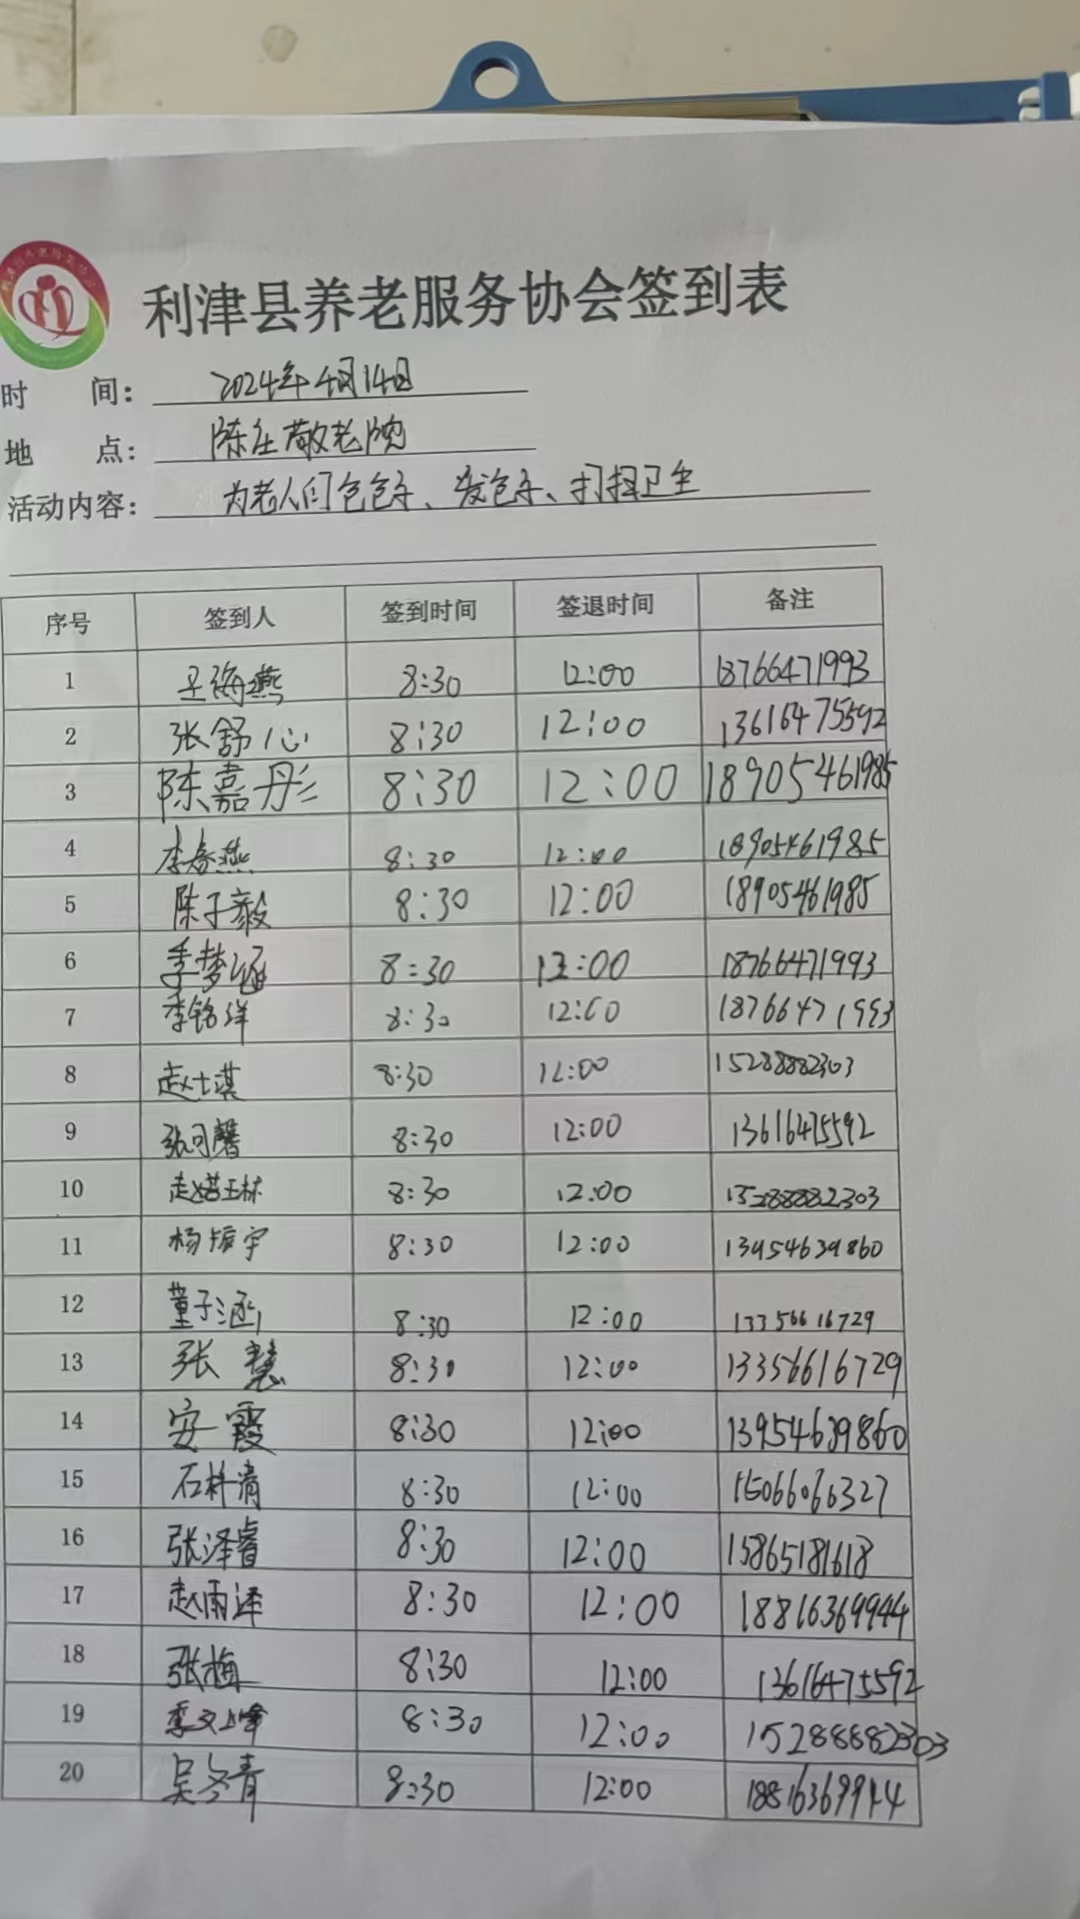 利津县养老服务协会签到表
时 间: 2024年4月14日
地 点: 陈庄敬老院
活动内容: 为老人们包包子、发包子、打扫卫生
序号 签到人 签到时间 签退时间 备注
1 王海燕 8:30 12:00 18766471993
2 张舒心 8:30 12:00 13616475592
3 陈嘉彤 8:30 12:00 18905461985
4 李春燕 8:30 12:00 18905461985
5 陈子毅 8:30 12:00 18905461985
6 季梦涵 8:30 12:00 18766471993
7 季铭洋 8:30 12:00 18766471993
8 赵士淇 8:30 12:00 15288882303
9 张可馨 8:30 12:00 13616475592
10 赵婼琳 8:30 12:00 15288882303
11 杨振宇 8:30 12:00 13954639860
12 董子涵 8:30 12:00 13356616729
13 张慧 8:30 12:00 13356616729
14 安霞 8:30 12:00 13954639860
15 石 清 8:30 12:00 15066066327
16 张泽睿 8:30 12:00 15865181618
17 赵雨泽 8:30 12:00 18816369944
18 张梅 8:30 12:00 13616475592
19 8:30 12:00 15288882303
20 吴冬青 8:30 12:00 18816369944